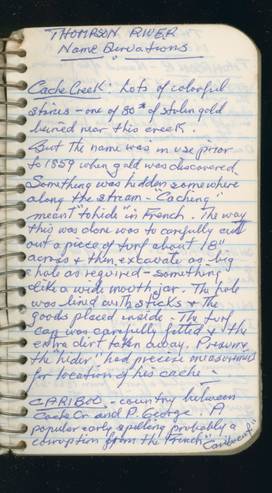 THOMPSON RIVER
Name Derivations
Cache Creek: Lots of colorful
stories - one of 80# of stolen gold
buried near this creek.
But the name was in use prior
to 1859 when gold was discovered.
Something was hidden somewhere
along the stream - "Caching"
meant "to hide" in French. The way
this was done was to carefully cut
out a piece of turf about 18"
across & then excavate as big
hole as required - something
like a wide mouth jar. The hole
was lined with sticks & the
goods placed inside - The turf
cap was carefully fitted & the
extra dirt taken away.
the "hider" had precise measurements
for location of his cache -
CARIBOO - country between
Cache Cr. and P. George. A
popular early spelling probably a
corruption from the French